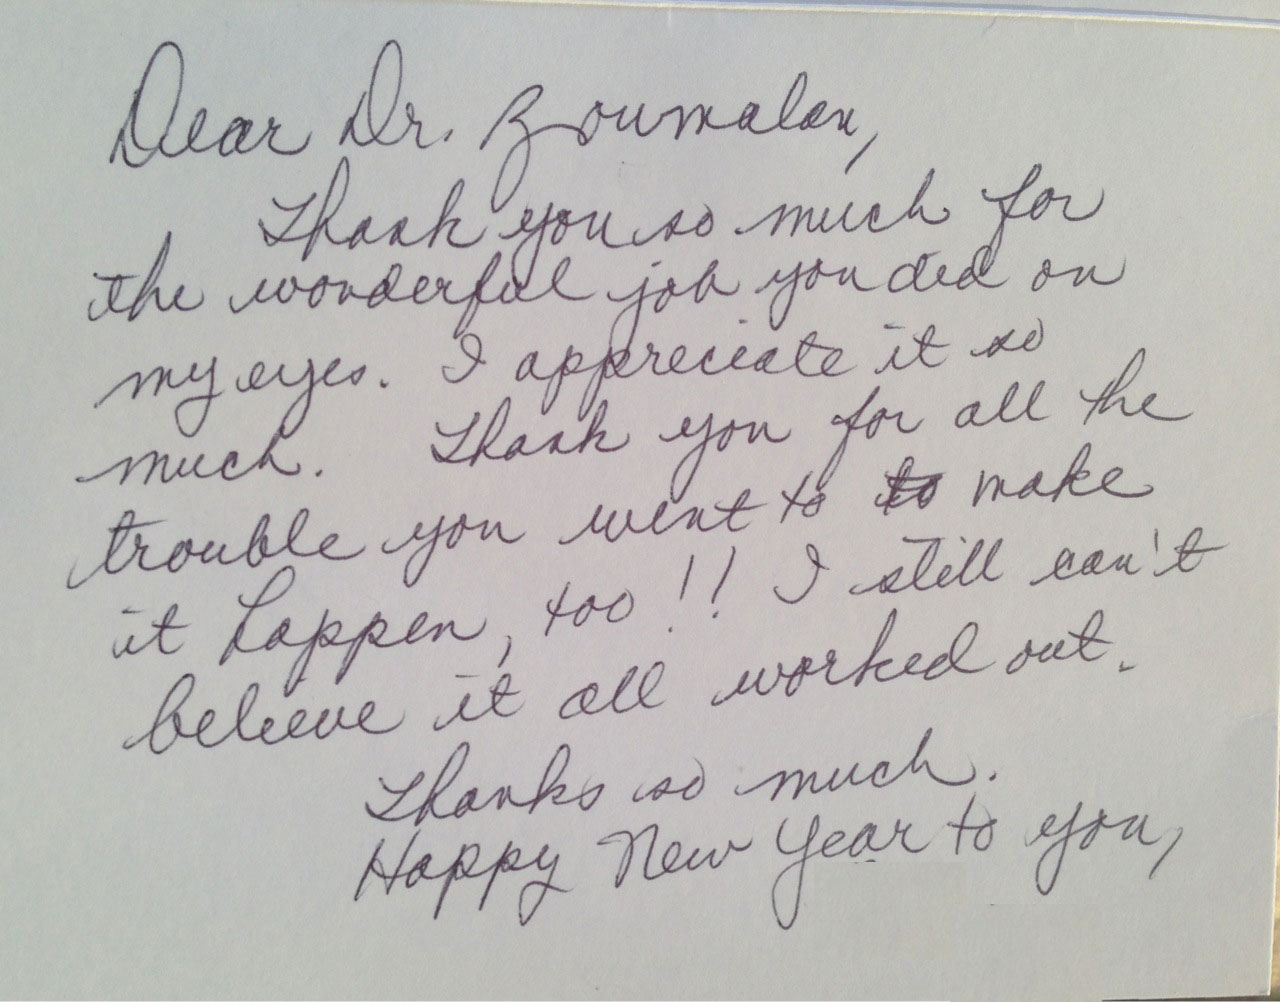 Dear Dr. Boumalan,
Thank you so much for
the wonderful job you did on
my eyes. I appreciate it so
much. Thank you for all the
trouble you went to to make
it happen, too!! I still can't
believe it all worked out.
Thanks so much.
Happy New Year to you,